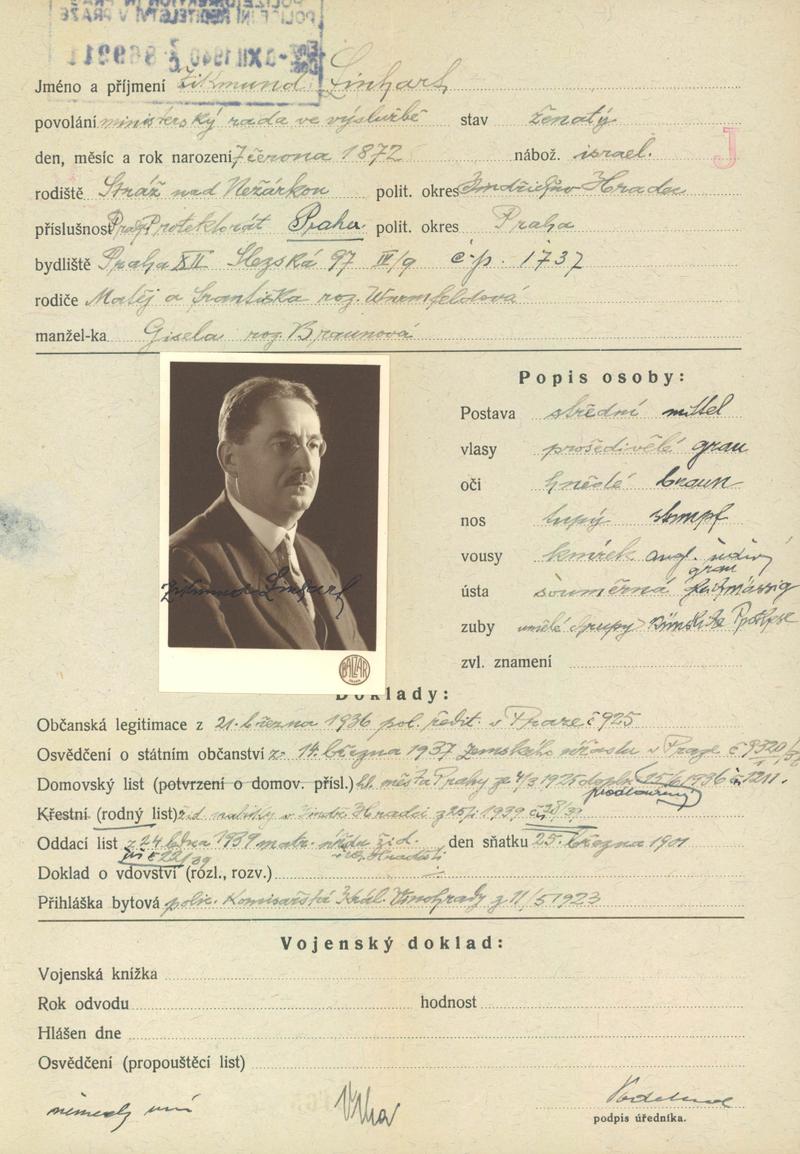 Jméno a příjmení Zikmund Linhart
povolání ministerský rada ve výslužbě stav ženatý
den, měsíc a rok narození 7 června 1872 nábož. israel. J
rodiště Stráž nad Nežárkou polit. okres Jindřichův Hradec
příslušnost Protektorát Praha polit. okres Praha
bydliště Praha XII Slezská 97 IV/9 č.p. 1737
rodiče Matěj a Františka roz. Wurmfeldová
manžel-ka Gisela roz. Braunová
Popis osoby:
Postava střední mittel
vlasy prošedivělé grau
oči hnědé braun
nos tupý stumpf
vousy knírek angl. šedivý
grau
ústa souměrná
zuby umělé
zvl. znamení
Zikmund Linhart
BALZAR
Doklady:
Občanská legitimace z 21. března 1936 pol. ředit. v Praze č 925
Osvědčení o státním občanství z 14. března 1937 zemského úřadu v Praze č 9320
Domovský list (potvrzení o domov. přísl.) hl. města Prahy ze 4/3 1925 1936 č. 1211.
Křestní (rodný list) žid. matriky v Jindř. Hradci 1939 č 38/39
Oddací list z 24 1939 matr. úřadu žid. den sňatku 25. března 1901
v Jindř. Hradci
Doklad o vdovství (rozl., rozv.)
Přihláška bytová polic. komisařství Král. Vinohrady z 11/5 1923
Vojenský doklad:
Vojenská knížka
Rok odvodu hodnost
Hlášen dne
Osvědčení (propouštěcí list)
německy umí
podpis úředníka.